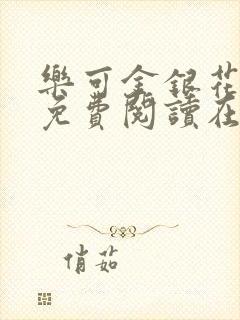 樂可金銀花
免費閱讀在
俏茹